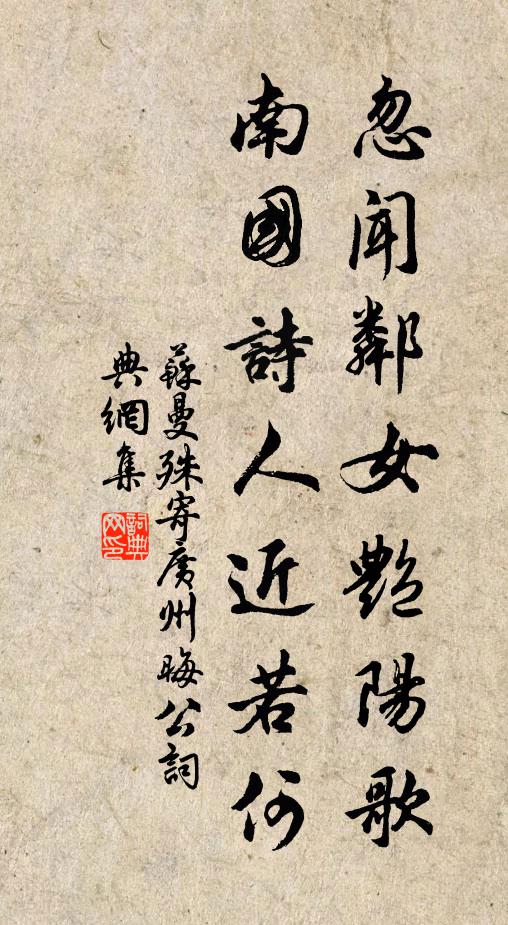 忽聞鄰女艷陽歌
南國詩人近若何
蘇曼殊寄廣州晦公詞
典網集
詞典网印